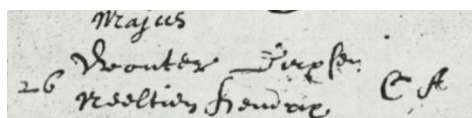 Majus
26 Wouter Dirxsen
Neeltien Hendrix C A